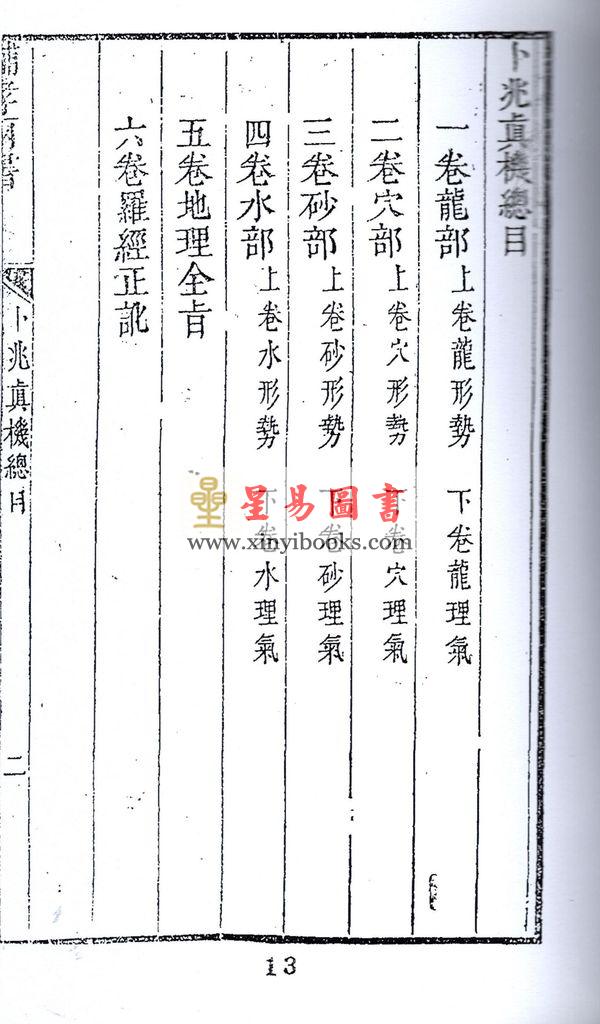 卜兆真機總目
一卷龍部 上卷龍形勢 下卷龍理氣
二卷穴部 上卷穴形勢 下卷穴理氣
三卷砂部 上卷砂形勢 下卷砂理氣
四卷水部 上卷水形勢 下卷水理氣
五卷地理全旨
六卷羅經正訛
卜兆真機總目 二
星易圖書
www.xinyibooks.com
13